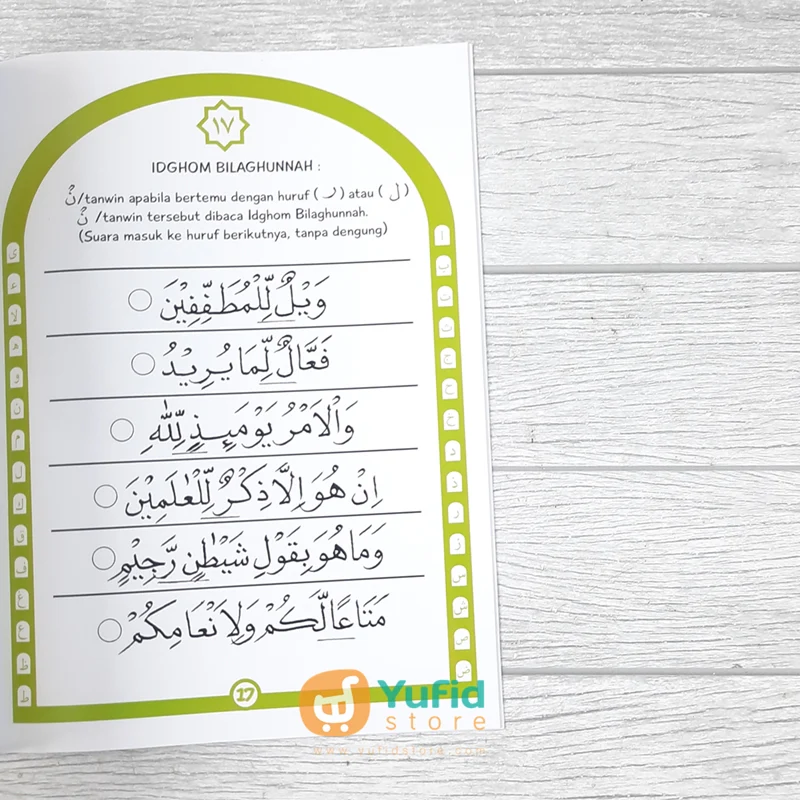 ١٧
IDGHOM BILAGHUNNAH :
نْ/tanwin apabila bertemu dengan huruf ( ر ) atau ( ل )
نْ /tanwin tersebut dibaca Idghom Bilaghunnah.
(Suara masuk ke huruf berikutnya, tanpa dengung)
وَيْلٌ لِّلْمُطَفِّفِيْنَ
فَعَّالٌ لِّمَا يُرِيْدُ
وَالْاَمْرُ يَوْمَىِٕذٍ لِّلّٰهِ
اِنْ هُوَ اِلَّا ذِكْرٌ لِّلْعٰلَمِيْنَ
وَمَا هُوَ بِقَوْلِ شَيْطٰنٍ رَّجِيْمٍ
مَتَاعًا لَّكُمْ وَلِاَنْعَامِكُمْ
ا
ب
ت
ث
ج
ح
خ
د
ذ
ر
ز
س
ش
ص
ض
ي
ء
لا
ه
و
ن
م
ل
ك
ق
ف
غ
ع
ظ
ط
17
Yufid
store
www.yufidstore.com